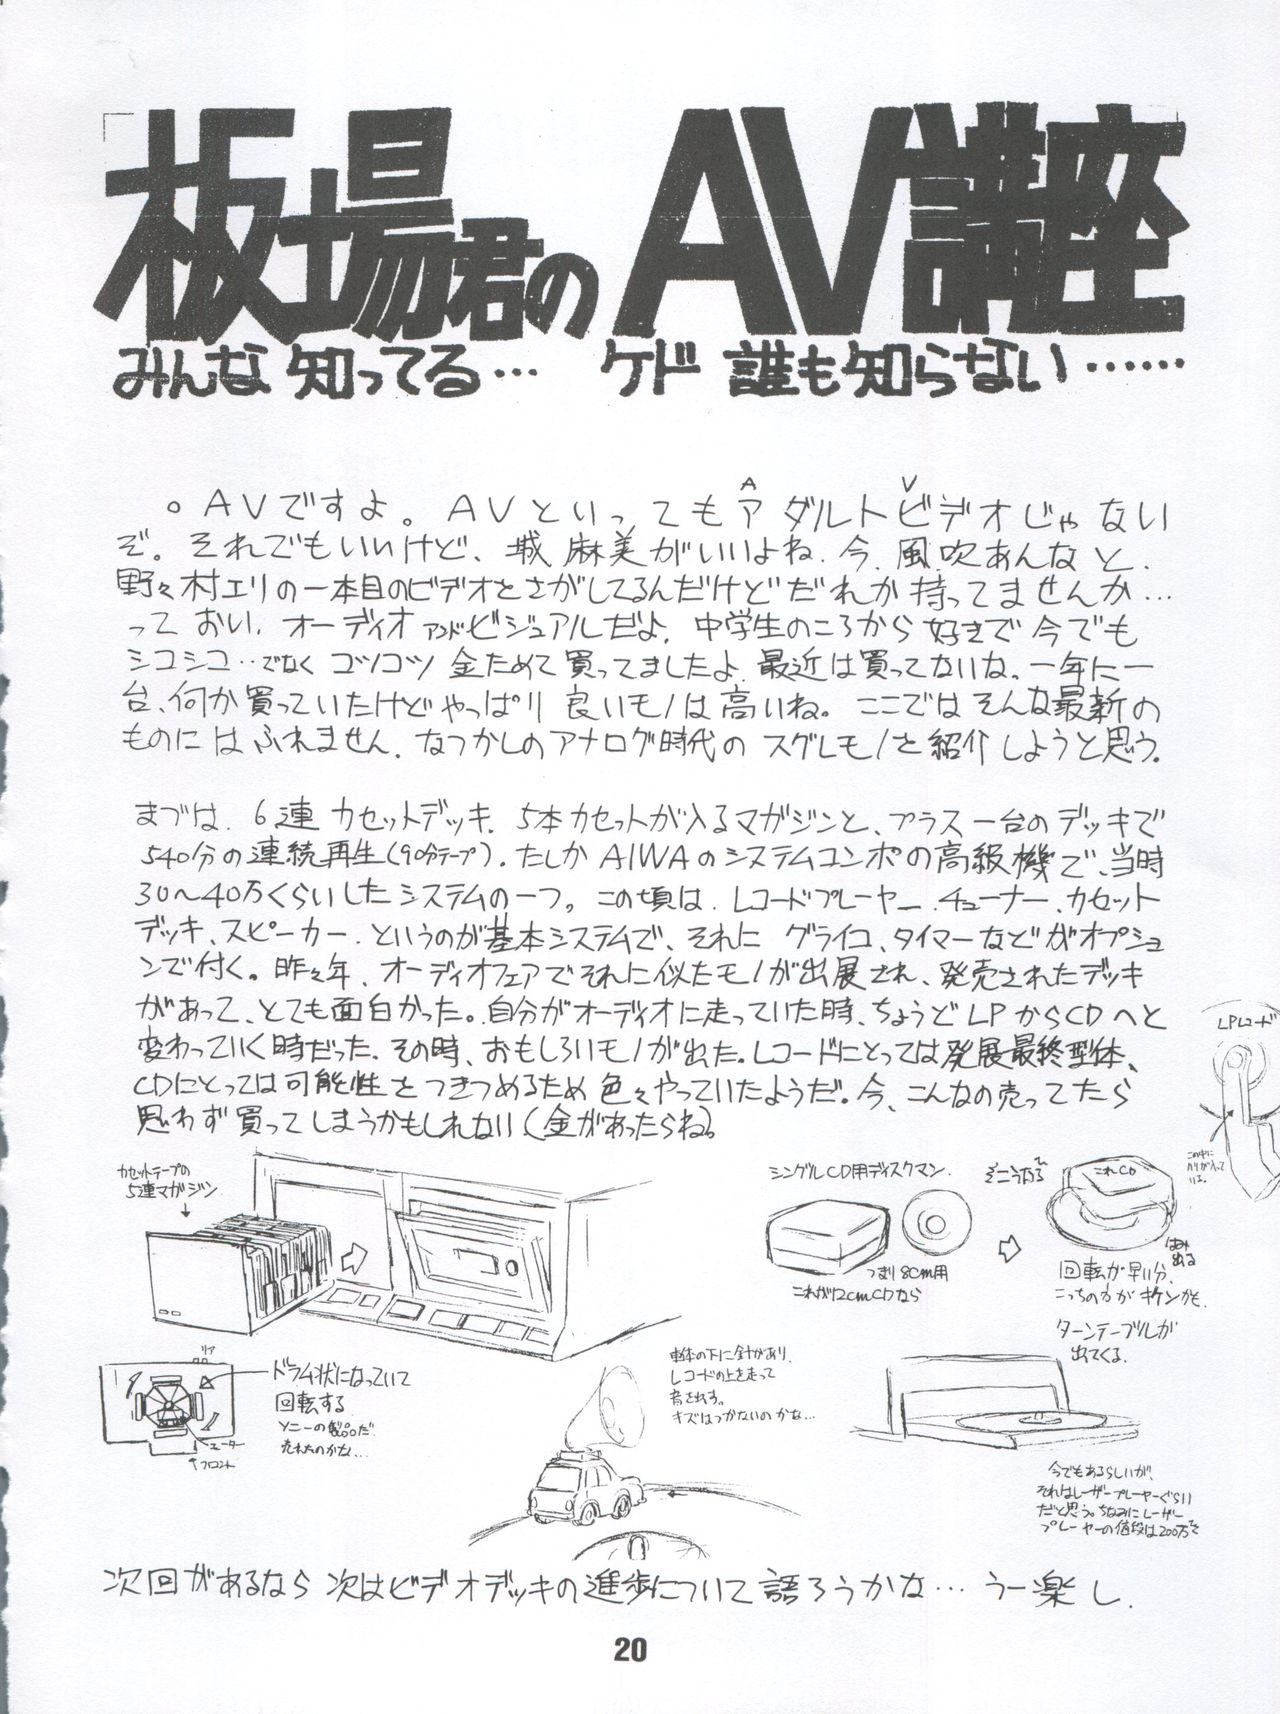 板場君のAV講座
みんな知ってる… ケド 誰も知らない……
。AVですよ。AVといってもアダルトビデオじゃない
A V
ぞ。それでもいいけど、城麻美がいいよね.今、風吹あんなと、
野々村エリの一本目のビデオとさがしてるんだけどだれか持ってませんか…
っておい、オーディオアンドビジュアルだよ.中学生のころから好きで今でも
シコシコ…でなくコツコツ金ためて買ってましたよ.最近は買ってないな。一年に一
台、何か買っていたけどやっぱり良いモノは高いね。ここではそんな最新の
ものにはふれません.なつかしのアナログ時代のスグレモノを紹介しようと思う。
まづは、6連カセットデッキ.5本カセットが入るマガジンと、プラス一台のデッキで
540分の連続再生(90分テープ).たしかAIWAのシステムコンポの高級機で、当時
30〜40万くらいしたシステムの一つ。この頃は、レコードプレーヤー.チューナー、カセット
デッキ、スピーカー.というのが基本システムで、それにグライコ、タイマーなどがオプショ
ンで付く。昨々年、オーディオフェアでそれに似たモノが出展され、発売されたデッキ
があって、とても面白かった。自分がオーディオに走っていた時、ちょうどLPからCDへと
変わっていく時だった.その時、おもしろいモノが出た。レコードにとっては発展最終型体、
CDにとっては可能性をつきつめるため色々やっていたようだ。今、こんなの売ってたら
思わず買ってしまうかもしれない(金があったらね。
LPレコード
この中に
ハリが入って
いる。
カセットテープの
5連マガジン
シングルCD用ディスクマン.
つまり8cm用
これが12cmCDなら
これCD
はみ
出る
回転が早い分、
こっちの方がキケンかも.
ターンテーブルが
出てくる.
リア
ドラム状になっていて
回転する
ソニーの製品だ
売れたのかな…
フロント
車体の下に針があり、
レコードの上を走って
音を出す。
キズはつかないのかな…
今でもあるらしいが、
それはレーザープレーヤーぐらい
だと思う。ちなみにレーザー
プレーヤーの値段は200万
次回があるなら次はビデオデッキの進歩について語ろうかな… うー楽し.
20